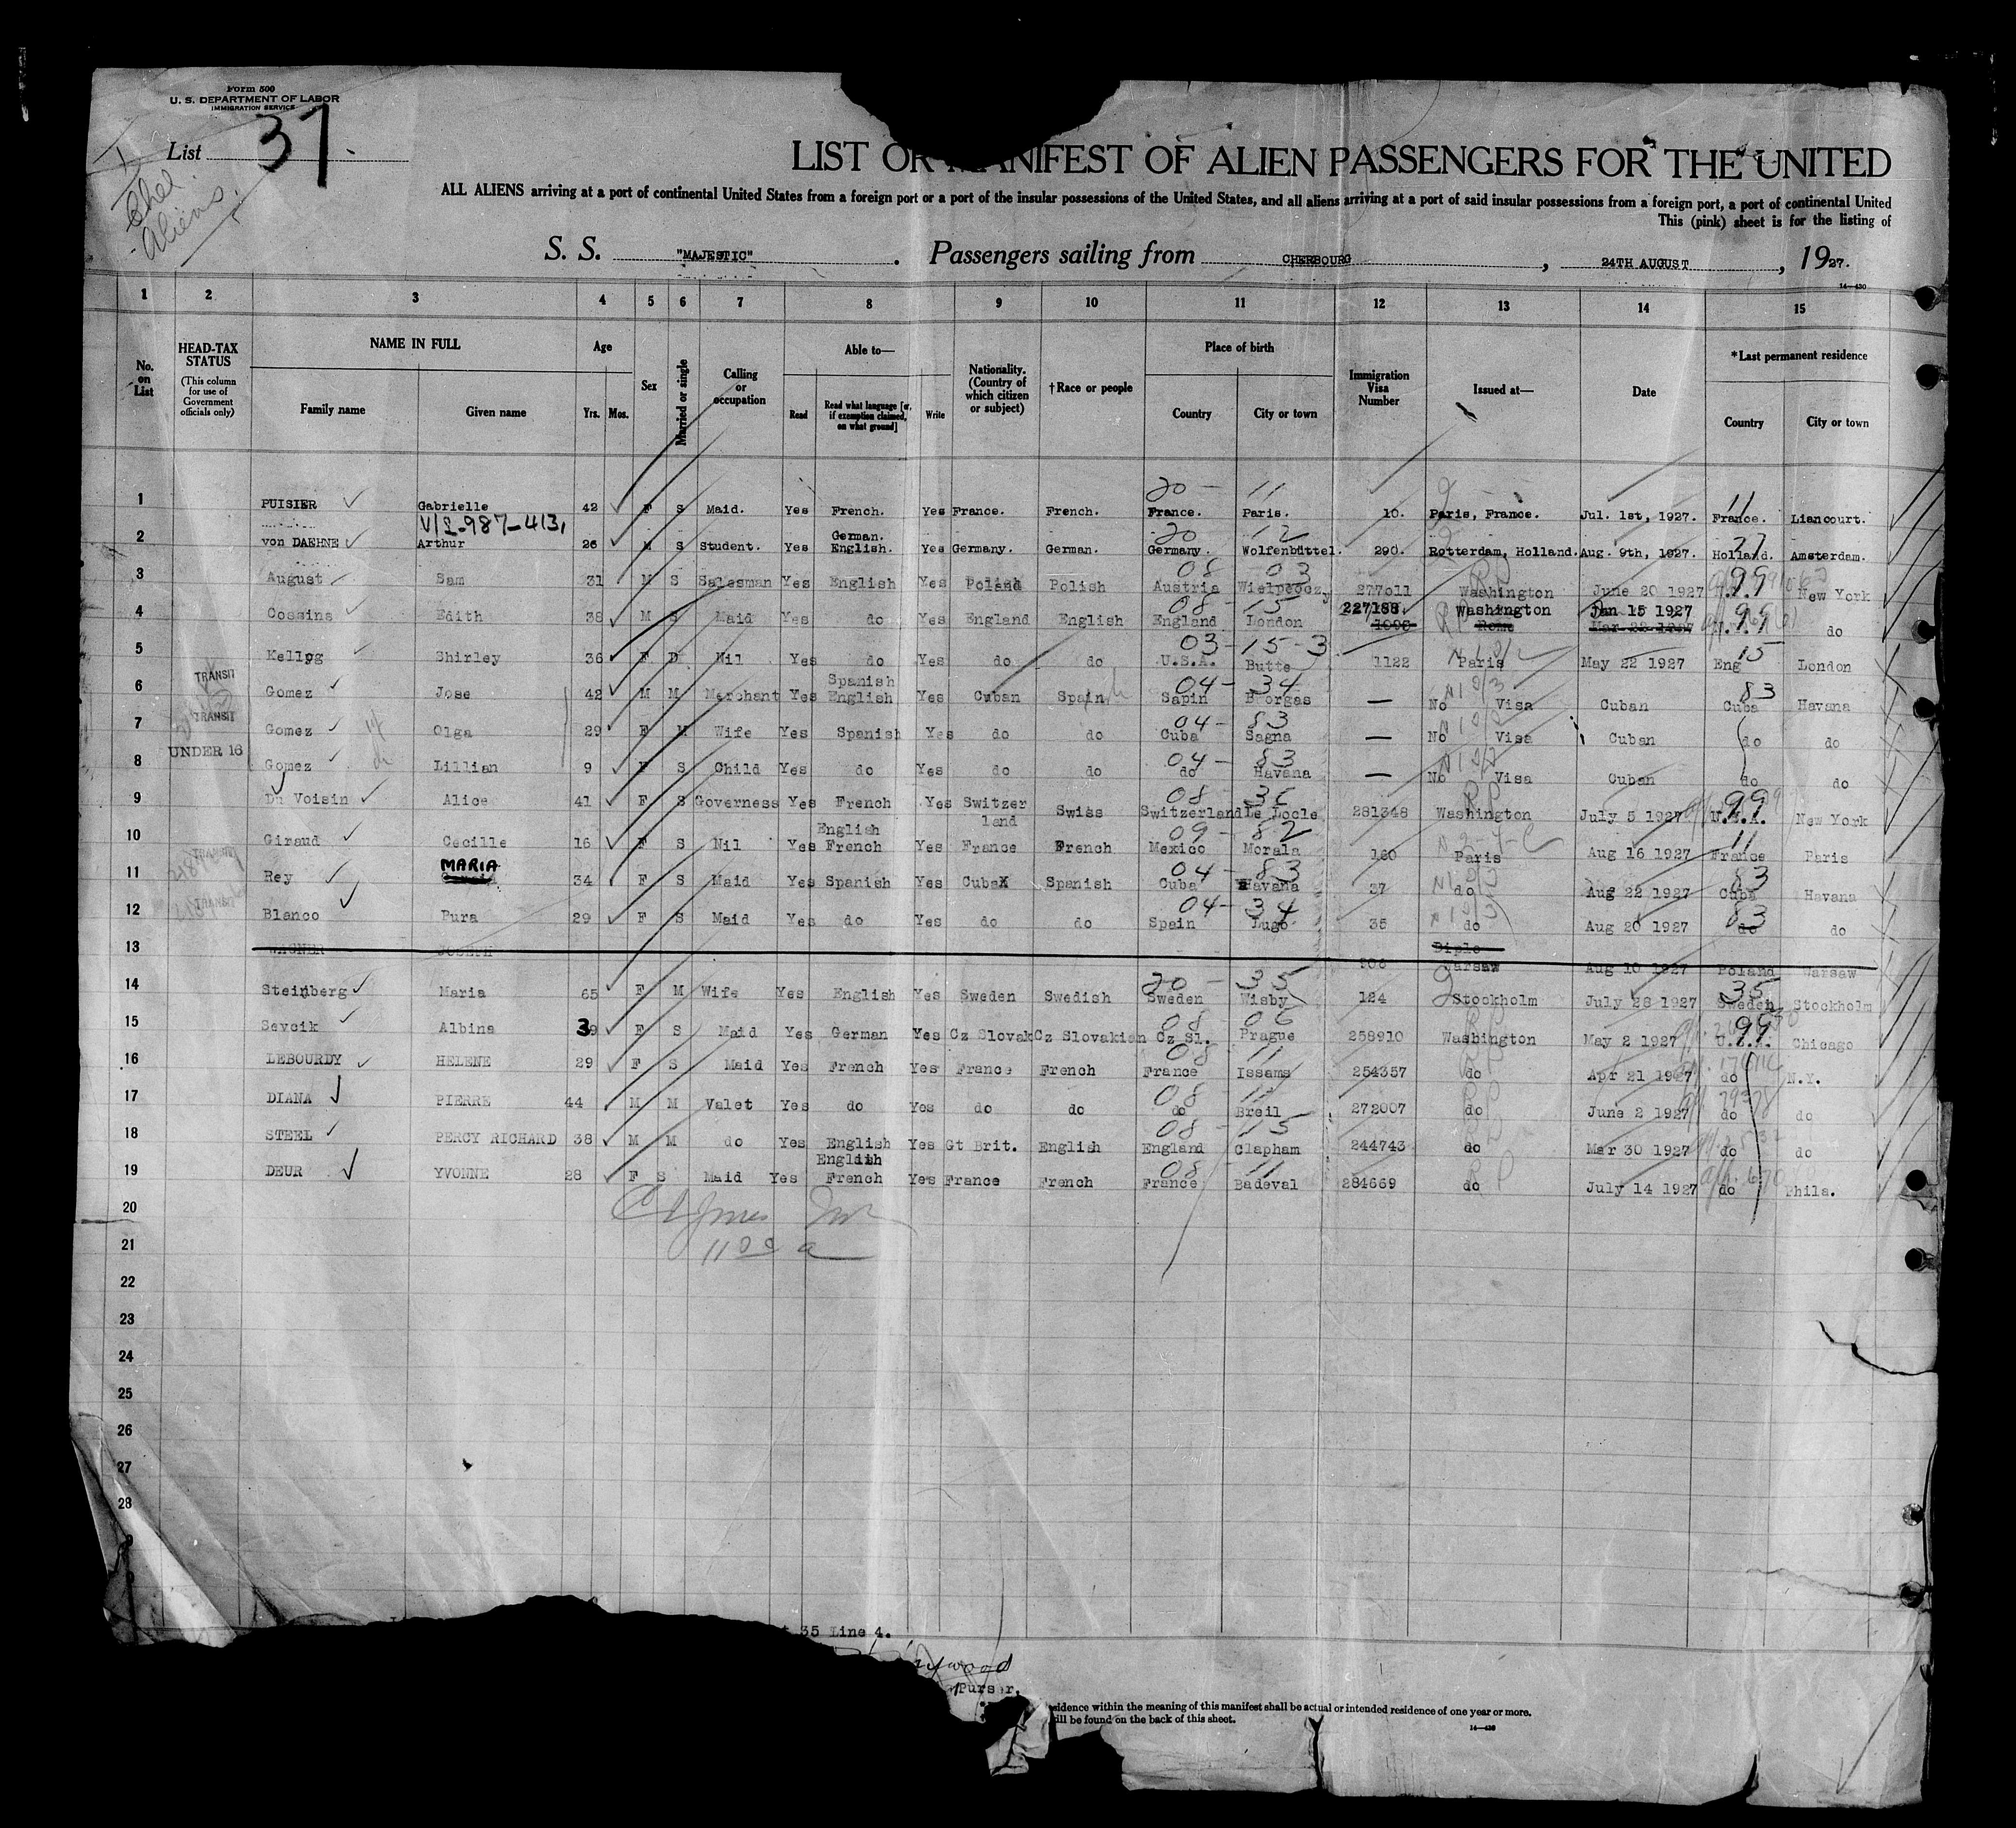 Form 500
U. S. DEPARTMENT OF LABOR
IMMIGRATION SERVICE
List 37.
Aliens.
LIST OR MANIFEST OF ALIEN PASSENGERS FOR THE UNITED
ALL ALIENS arriving at a port of continental United States from a foreign port or a port of the insular possessions of the United States, and all aliens arriving at a port of said insular possessions from a foreign port, a port of continental United
This (pink) sheet is for the listing of
S. S. "MAJESTIC". Passengers sailing from CHERBOURG, 24TH AUGUST, 1927.
14—430
1 2 3 4 5 6 7 8 9 10 11 12 13 14 15
No. on List
HEAD-TAX STATUS (This column for use of Government officials only)
NAME IN FULL Family name Given name
Age Yrs. Mos.
Sex
Married or single
Calling or occupation
Able to— Read Read what language [or, if exemption claimed, on what ground] Write
Nationality. (Country of which citizen or subject)
†Race or people
Place of birth Country City or town
Immigration Visa Number
Issued at—
Date
*Last permanent residence Country City or town
20 - 11
1 PUISIER Gabrielle 42 F S Maid. Yes French. Yes France. French. France. Paris. 10. Paris, France. Jul. 1st, 1927. 11 France. Liancourt.
V/L-987-413,
20 12
2 von DAEHNE Arthur 26 M S Student. Yes German. English. Yes Germany. German. Germany. Wolfenbüttel. 290. Rotterdam, Holland. Aug. 9th, 1927. Holland. Amsterdam.
08 03
3 August Sam 31 M S Salesman Yes English Yes Poland Polish Austria 277011 Washington June 20 1927 99 New York
08 - 15
4 Cossins Edith 38 M S Maid Yes do Yes England English England London 227188. 1098 Washington Rome Jan 15 1927 Mar 22 1927 99 do
03 - 15 - 3
5 Kellog Shirley 36 F D Nil Yes do Yes do do U.S.A. Butte 1122 Paris May 22 1927 Eng 15 London
TRANSIT
04 - 34
6 Gomez Jose 42 M M Merchant Yes Spanish English Yes Cuban Spain Sapin Borgas — No Visa Cuban 83 Cuba Havana
TRANSIT
04 - 83
7 Gomez Olga 29 F M Wife Yes Spanish Yes do do Cuba Sagna — No Visa Cuban do do
UNDER 16
04 - 83
8 Gomez Lillian 9 F S Child Yes do Yes do do do Havana — No Visa Cuban do do
08 - 36
9 Du Voisin Alice 41 F S Governess Yes French Yes Switzer land Swiss Switzerland Le Locle 281348 RP Washington July 5 1927 99 U.S.A. New York
09 - 82
10 Giraud Cecille 16 F S Nil Yes English French Yes France French Mexico Morala 160 Paris Aug 16 1927 11 France Paris
TRANSIT
04 - 83
11 Rey MARIA 34 F S Maid Yes Spanish Yes Cuba Spanish Cuba Havana 37 do Aug 22 1927 83 Cuba Havana
TRANSIT
04 - 34
12 Blanco Pura 29 F S Maid Yes do Yes do do Spain Lugo 35 do Aug 20 1927 83 do do
13 WAGNER JOSEPH Diplo Warsaw Aug 10 1927 Poland Warsaw
20 - 35
14 Steinberg Maria 65 F M Wife Yes English Yes Sweden Swedish Sweden Wisby 124 Stockholm July 28 1927 35 Sweden Stockholm
08 - 06
15 Sevcik Albina 39 F S Maid Yes German Yes Cz Slovak Cz Slovakian Cz Sl. Prague 258910 Washington May 2 1927 99 U.S.A. Chicago
08 11
16 LEBOURDY HELENE 29 F S Maid Yes French Yes France French France Issams 254357 do Apr 21 1927 do N.Y.
08 11
17 DIANA PIERRE 44 M M Valet Yes do Yes do do do Breil 272007 do June 2 1927 do do
08 - 15
18 STEEL PERCY RICHARD 38 M M do Yes English Yes Gt Brit. English England Clapham 244743 do Mar 30 1927 do do
08 - 11
19 DEUR YVONNE 28 F S Maid Yes English French Yes France French France Badeval 284669 do RP July 14 1927 do Phila.
20
21 11 00 a
22
23
24
25
26
27
28
35 Line 4.
Purser.
esidence within the meaning of this manifest shall be actual or intended residence of one year or more.
ill be found on the back of this sheet.
14—430